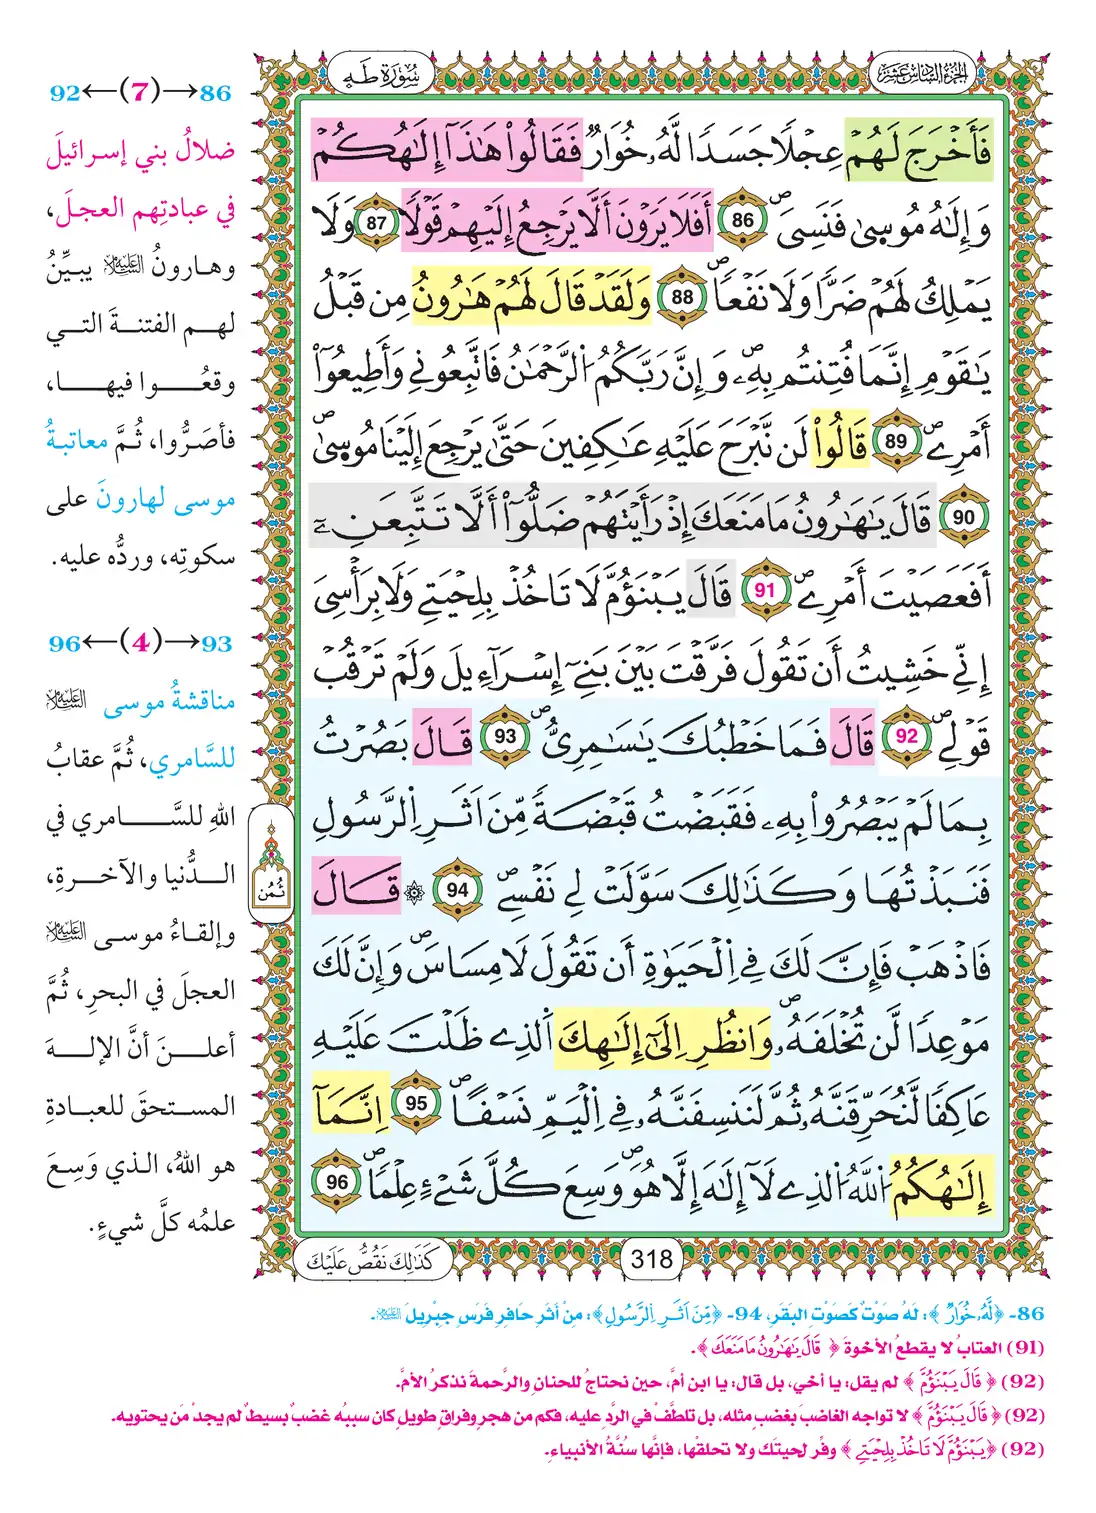 سُورَةُ طَهَ
الجزء السادس عشر
فَأَخْرَجَ لَهُمْ عِجْلًا جَسَدًا لَّهُۥ خُوَارٌ فَقَالُوا۟ هَٰذَآ إِلَٰهُكُمْ
وَإِلَٰهُ مُوسِىٰ فَنَسِىَ 86 أَفَلَا يَرَوْنَ أَلَّا يَرْجِعُ إِلَيْهِمْ قَوْلًا 87 وَلَا
يَمْلِكُ لَهُمْ ضَرًّا وَلَا نَفْعًا 88 وَلَقَدْ قَالَ لَهُمْ هَٰرُونُ مِن قَبْلُ
يَٰقَوْمِ إِنَّمَا فُتِنتُم بِهِۦ وَإِنَّ رَبَّكُمُ اُ۬لرَّحْمَٰنُ فَاتَّبِعُونِے وَأَطِيعُوٓا۟
أَمْرِے 89 قَالُوا۟ لَن نَّبْرَحَ عَلَيْهِ عَٰكِفِينَ حَتَّىٰ يَرْجِعَ إِلَيْنَا مُوسِىٰ
90 قَالَ يَٰهَٰرُونُ مَا مَنَعَكَ إِذْ رَأَيْتَهُمْ ضَلُّوٓا۟ أَلَّا تَتَّبِعَنِۦٓ
أَفَعَصَيْتَ أَمْرِے 91 قَالَ يَبْنَؤُمَّ لَا تَاخُذْ بِلِحْيَتِے وَلَا بِرَأْسِىٓ
إِنِّے خَشِيتُ أَن تَقُولَ فَرَّقْتَ بَيْنَ بَنِےٓ إِسْرَآءِيلَ وَلَمْ تَرْقُبْ
قَوْلِے 92 قَالَ فَمَا خَطْبُكَ يَٰسَٰمِرِىُّ 93 قَالَ بَصُرْتُ
بِمَا لَمْ يَبْصُرُوا۟ بِهِۦ فَقَبَضْتُ قَبْضَةً مِّنَ اَثَرِ اِ۬لرَّسُولِ
فَنَبَذْتُهَا وَكَذَٰلِكَ سَوَّلَتْ لِے نَفْسِے 94 ۞ قَالَ
فَاذْهَبْ فَإِنَّ لَكَ فِے اِ۬لْحَيَوٰةِ أَن تَقُولَ لَا مِسَاسَ وَإِنَّ لَكَ
مَوْعِدًا لَّن تُخْلَفَهُۥ وَانظُرِ اِلَىٰٓ إِلَٰهِكَ اَ۬لذِے ظَلْتَ عَلَيْهِ
عَاكِفًا لَّنُحَرِّقَنَّهُۥ ثُمَّ لَنَنسِفَنَّهُۥ فِے اِ۬لْيَمِّ نَسْفًا 95 اِنَّمَآ
إِلَٰهُكُمُ اُ۬للَّهُ اُ۬لذِے لَآ إِلَٰهَ إِلَّا هُوَ وَسِعَ كُلَّ شَےْءٍ عِلْمًا 96
كَذَٰلِكَ نَقُصُّ عَلَيْكَ
318
ثُمُن
86→(7)←92
ضلالُ بني إسرائيلَ
في عبادتِهم العجلَ،
وهارونُ عليه السلام يبيِّنُ
لهم الفتنةَ التي
وقعُوا فيها،
فأصَرُّوا، ثُمَّ معاتبةُ
موسى لهارونَ على
سكوتِه، وردُّه عليه.
93→(4)←96
مناقشةُ موسى عليه السلام
للسَّامري، ثُمَّ عقابُ
اللهِ للسَّامري في
الدُّنيا والآخرةِ،
وإلقاءُ موسى عليه السلام
العجلَ في البحرِ، ثُمَّ
أعلنَ أنَّ الإلهَ
المستحقَ للعبادةِ
هو اللهُ، الذي وَسِعَ
علمُه كلَّ شيءٍ.
86- ﴿لَّهُۥ خُوَارٌ﴾: لَهُ صَوْتٌ كَصَوْتِ البَقَرِ، 94- ﴿مِّنَ اَثَرِ اِ۬لرَّسُولِ﴾: مِنْ أَثَرِ حَافِرِ فَرَسِ جِبْرِيلَ عليه السلام.
(91) العتابُ لا يقطعُ الأخوةَ ﴿قَالَ يَٰهَٰرُونُ مَا مَنَعَكَ﴾.
(92) ﴿قَالَ يَبْنَؤُمَّ﴾ لم يقل: يا أخي، بل قال: يا ابن أمَّ، حين نحتاجُ للحنانِ والرَّحمةِ نذكرُ الأمَّ.
(92) ﴿قَالَ يَبْنَؤُمَّ﴾ لا تواجه الغاضبَ بغضبٍ مثله، بل تلطَّفْ في الرَّدِ عليه، فكم من هجرٍ وفراقٍ طويلٍ كان سببُه غضبٌ بسيطٌ لم يجدْ مَن يحتويه.
(92) ﴿يَبْنَؤُمَّ لَا تَاخُذْ بِلِحْيَتِے﴾ وفِّر لحيتَك ولا تحلقْها، فإنَّها سُنَّةُ الأنبياءِ.